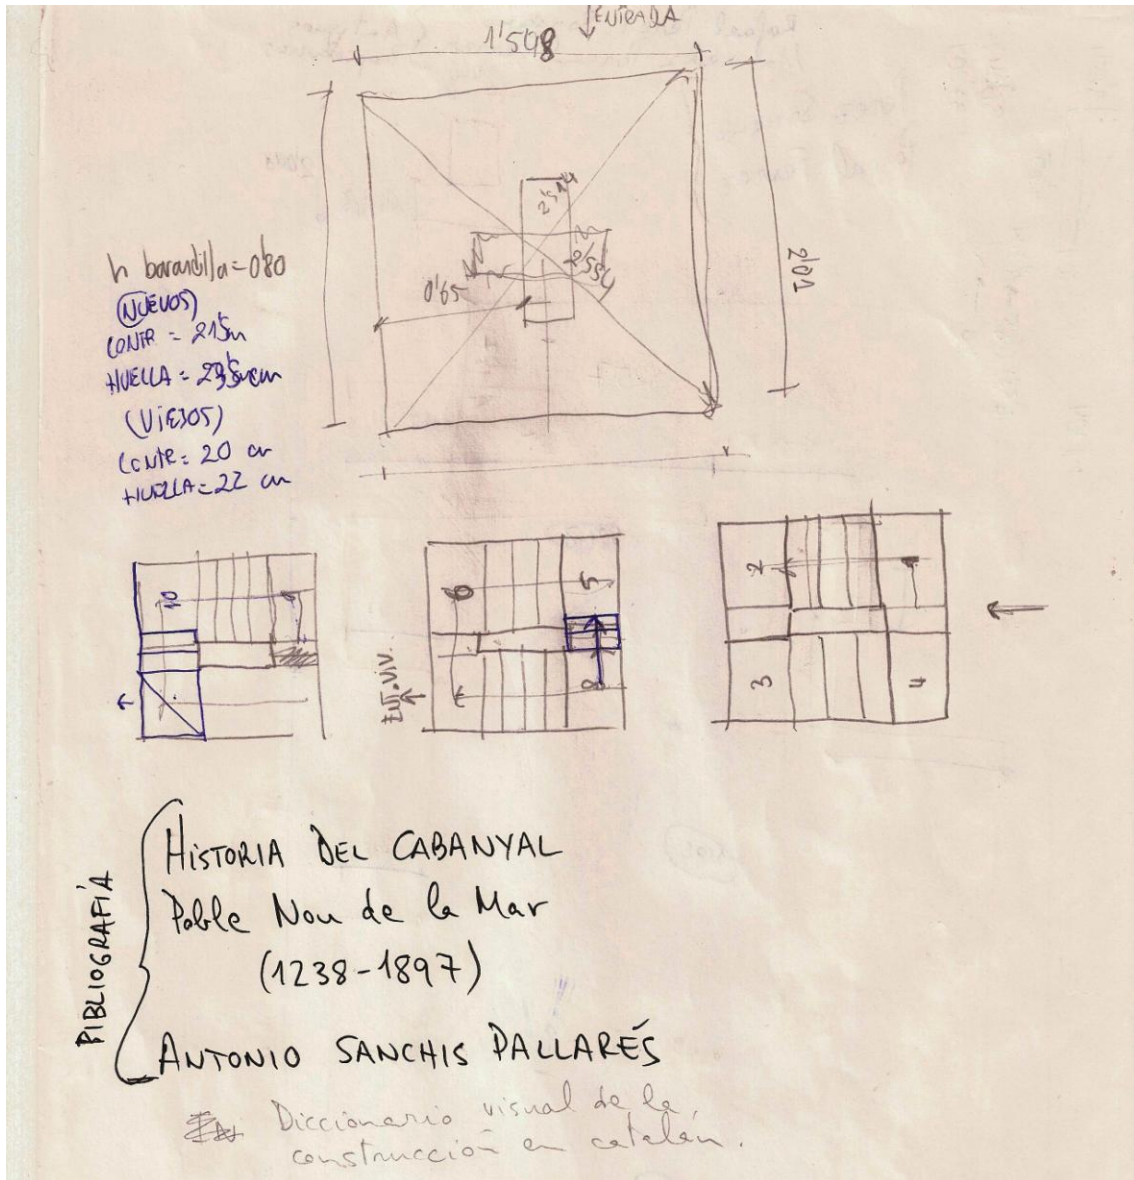 ↓ENTRADA
1'598
2'514
2'554
0'65
2'01
h barandilla=0'80
(NUEVOS)
CONTR = 21'5cm
HUELLA = 23'5cm
(VIEJOS)
CONTR= 20 cm
HUELLA=22 cm
10
9
6
5
8
ENT. VIV.
2
1
3
4
BIBLIOGRAFÍA
HISTORIA DEL CABANYAL
Poble Nou de la Mar
(1238-1897)
ANTONIO SANCHIS PALLARÉS
Diccionario visual de la
construcción en catalán.